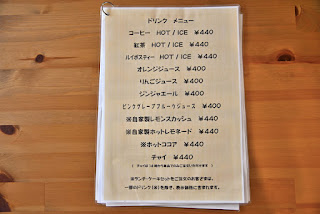 ドリンク メニュー
コーヒー HOT / ICE ¥440
紅茶 HOT / ICE ¥440
ルイボスティー HOT / ICE ¥440
オレンジジュース ¥400
りんごジュース ¥400
ジンジャエール ¥400
ピンクグレープフルーツジュース ¥400
※自家製レモンスカッシュ ¥440
※自家製ホットレモネード ¥440
※ホットココア ¥440
チャイ ¥440
※ランチ・ケーキセットをご注文のお客さまは、
一部のドリンク(※)を除き、表示価格に含まれます。